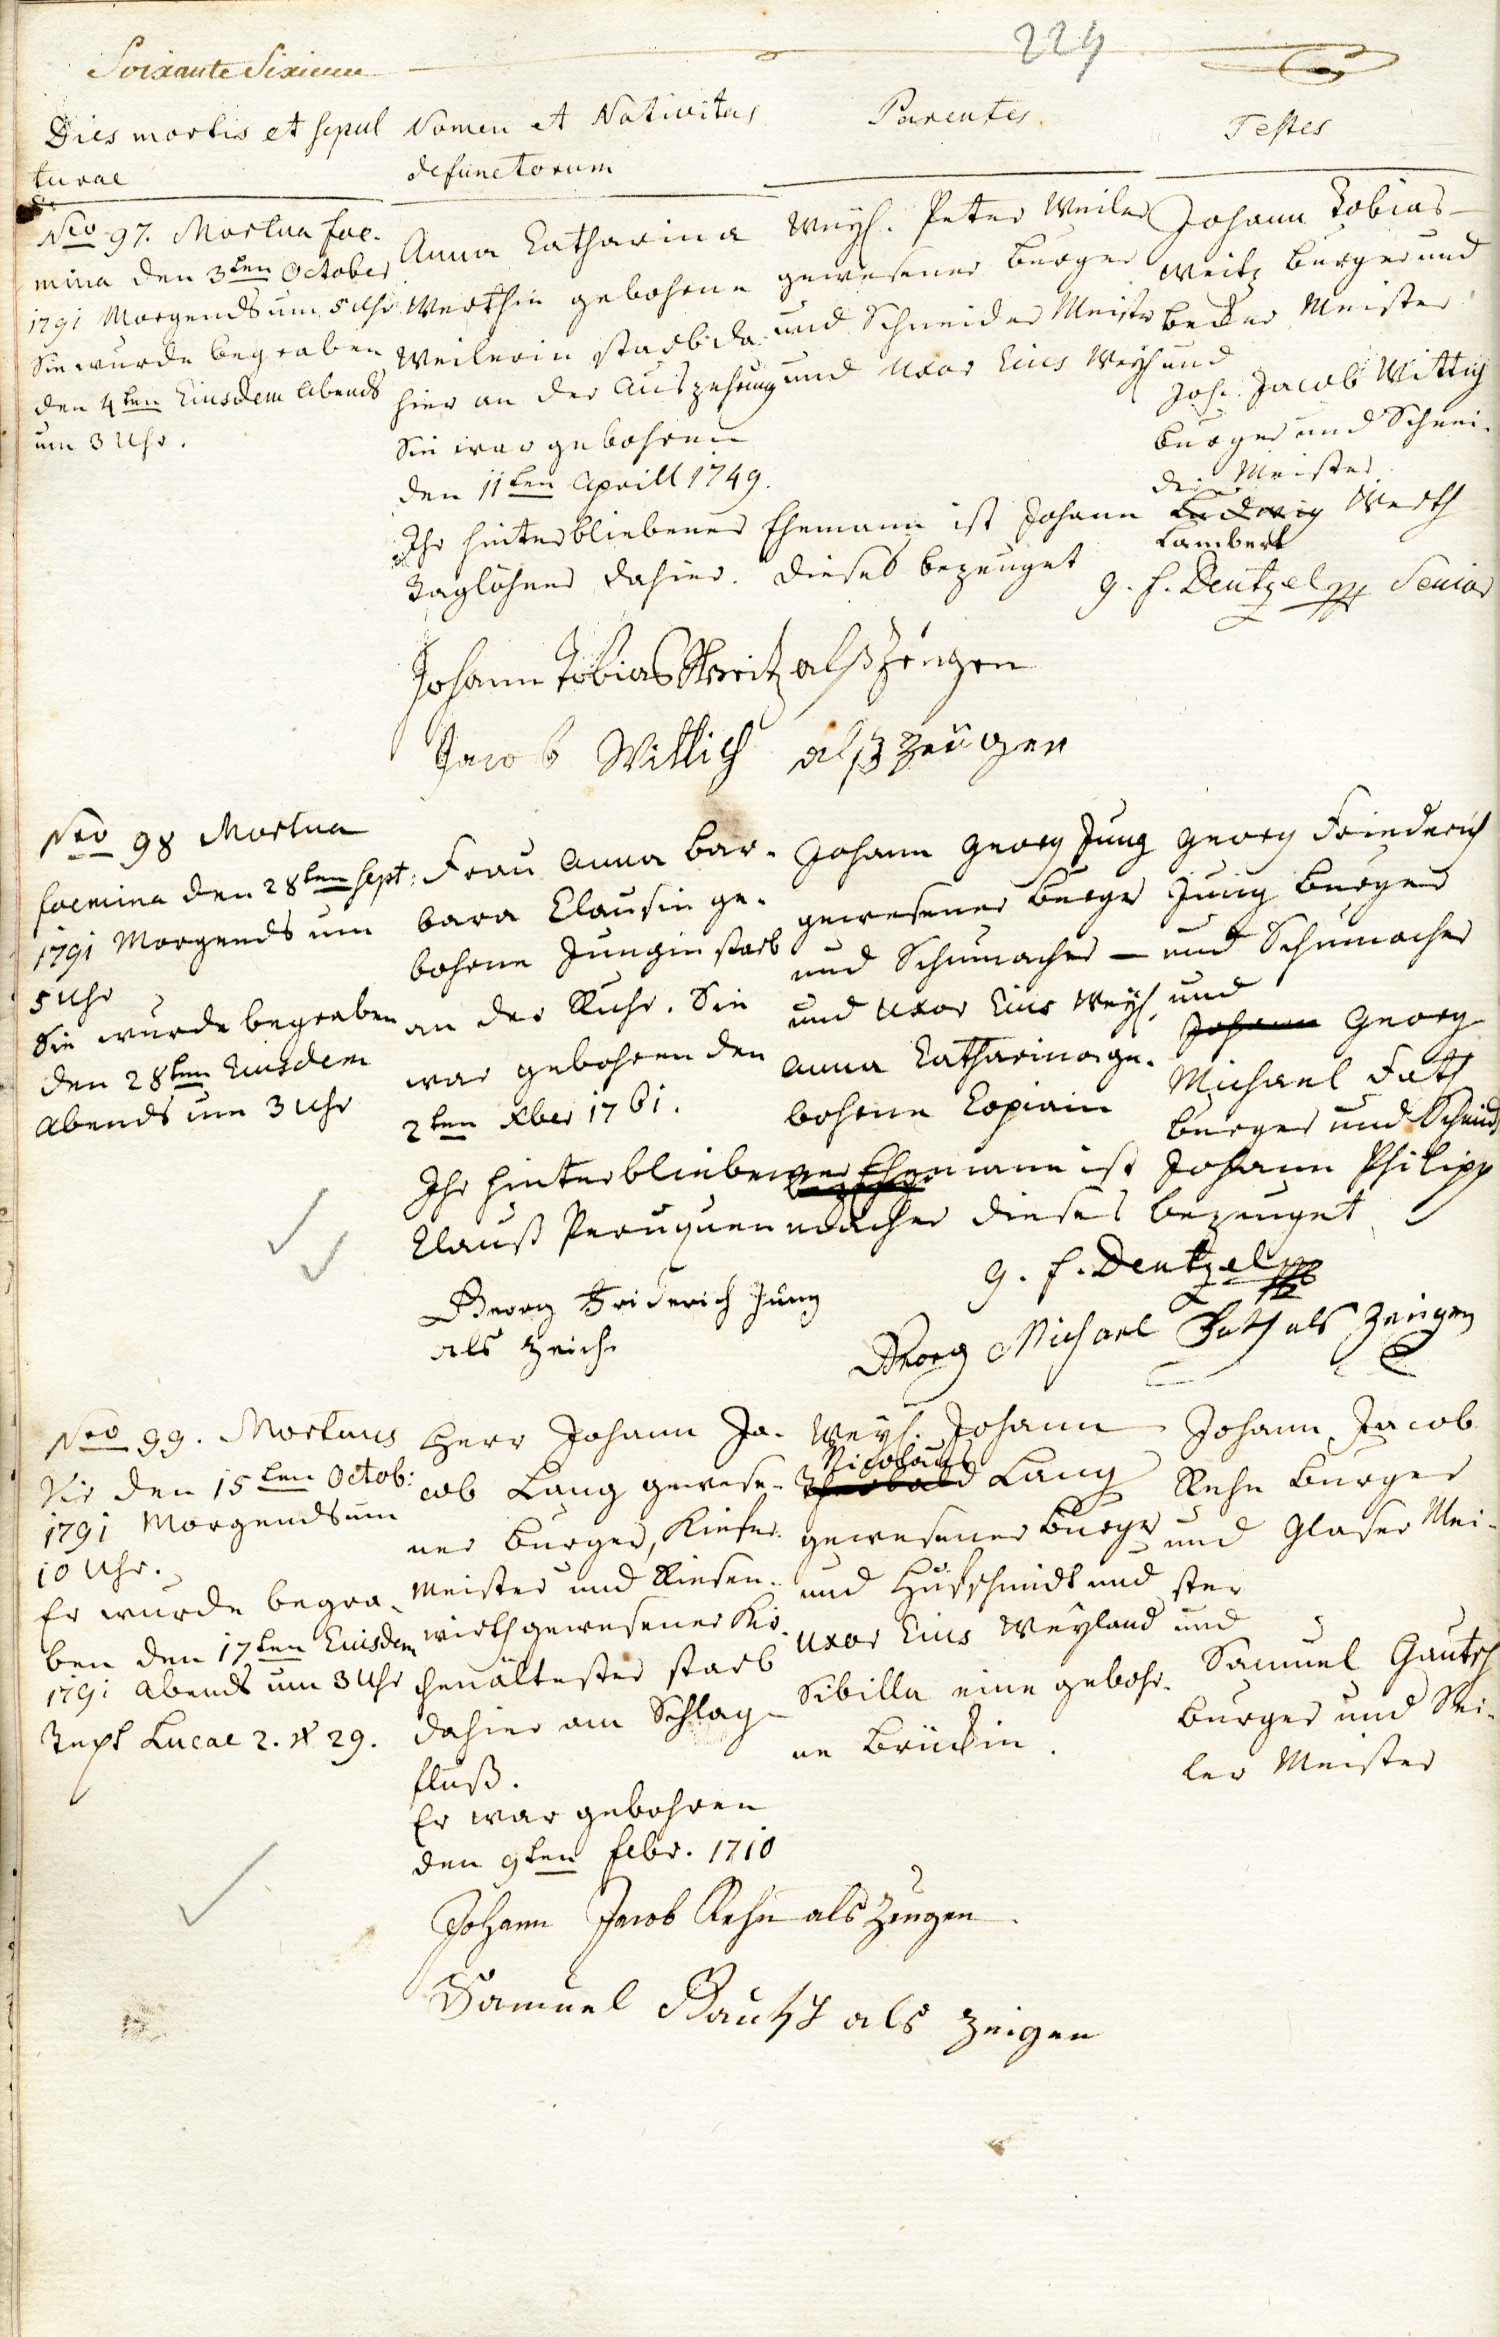 Soixante Sixieme
224
Dies mortis et sepul
turae
Nomen et Nativitas
defunctorum
Parentes
Testes
Nro 97. Mortua foe-
mina den 3ten October
1791 Morgends um 5 Uhr
Sie wurde begraben
den 4ten Eiusdem Abends
um 3 Uhr.
Anna Catharina
Werthin gebohrne
Weilerin starb da
hier an der Auszehrung
Sie war gebohren
den 11ten Aprill 1749.
Weyl. Peter Weiler
gewesener Burger
und Schneider Meister
und Uxor Eius Weyl
Johann Tobias
Weitz Burger und
Becker Meister
und
Joh. Jacob Wittig
Burger und Schnei-
der Meister
Ihr hinterbliebener Ehemann ist Johann Ludwig Werth
Lambert
Taglöhner dahier. Dieses bezeuget
g. f. Deutzel Senior
Johann Tobias Weitz alß Zeugen
Jacob Wittich alß Zeügen
Nro 98 Mortua
foemina den 28ten Sept:
1791 Morgends um
5 Uhr
Sie wurde begraben
den 28ten Eiusdem
Abends um 3 Uhr
Frau Anna Bar-
bara Clausin ge-
bohrne Jungin starb
an der Ruhr. Sie
war gebohren den
2ten Xber 1761.
Johann Georg Jung
gewesener Burger
und Schumacher
und Uxor Eius Weyl.
Anna Catharina ge-
bohrne
Georg Friederich
Jung Burger
und Schumacher
und
Johann Georg
Michael Fath
Burger und
Ihr hinterbliebener Ehemann ist Johann Philipp
Clauß Peruquenmacher dieses bezeuget
g. f. Deutzel
Georg Friderich Jung
als Zeich.
Georg Michael Fath als Zeugen
Nro 99. Mortuus
Vir den 15ten Octob:
1791 Morgends um
10 Uhr.
Er wurde begra-
ben den 17ten Eiusdem
1791 Abends um 3 Uhr
Text Lucae 2. V 29.
Herr Johann Ja-
cob Lang gewese-
ner Burger, Kiefer-
Meister und Riesen-
wirth gewesener Kir-
chenältester starb
dahier am Schlag-
fluß.
Er war gebohren
den 9ten Febr. 1710
Weyl. Johann
Nicolaus
Theobald Lang
gewesener Burger
und Hufschmidt und
Uxor Eius Weyland
Sibilla eine gebohr-
ne Brückin.
Johann Jacob
Rehn Burger
und Glaser Mei-
ster
und
Samuel Gautsch
Burger und Sei-
ler Meister
Johann Jacob Rehn als Zeugen
Samuel Gautsch als Zeigen